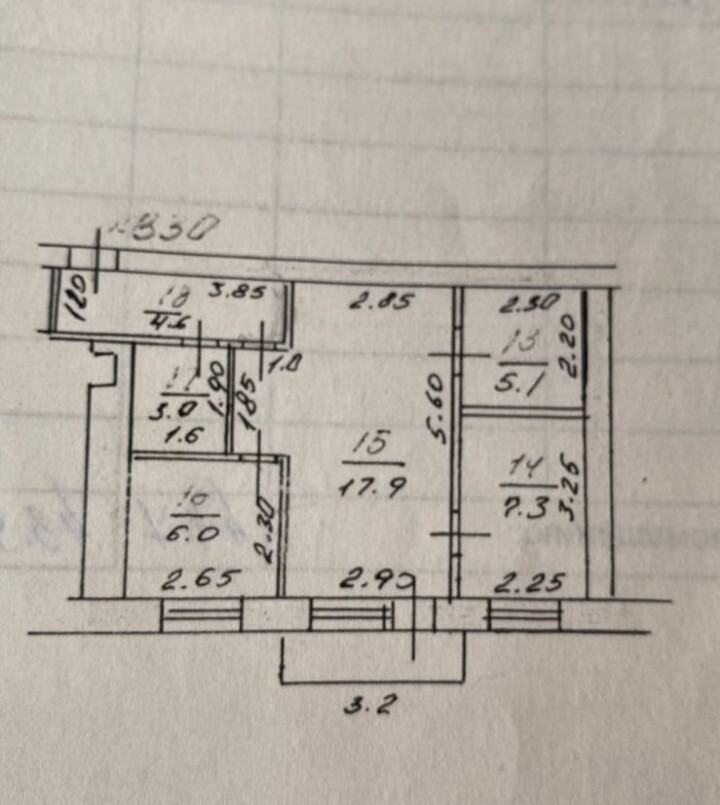 330
120
18
4.6
3.85
2.85
2.30
13
5.1
2.20
1.0
17
3.0
1.90
1.85
1.6
5.60
15
17.9
14
7.3
3.25
6.0
2.30
2.65
2.90
2.25
3.2